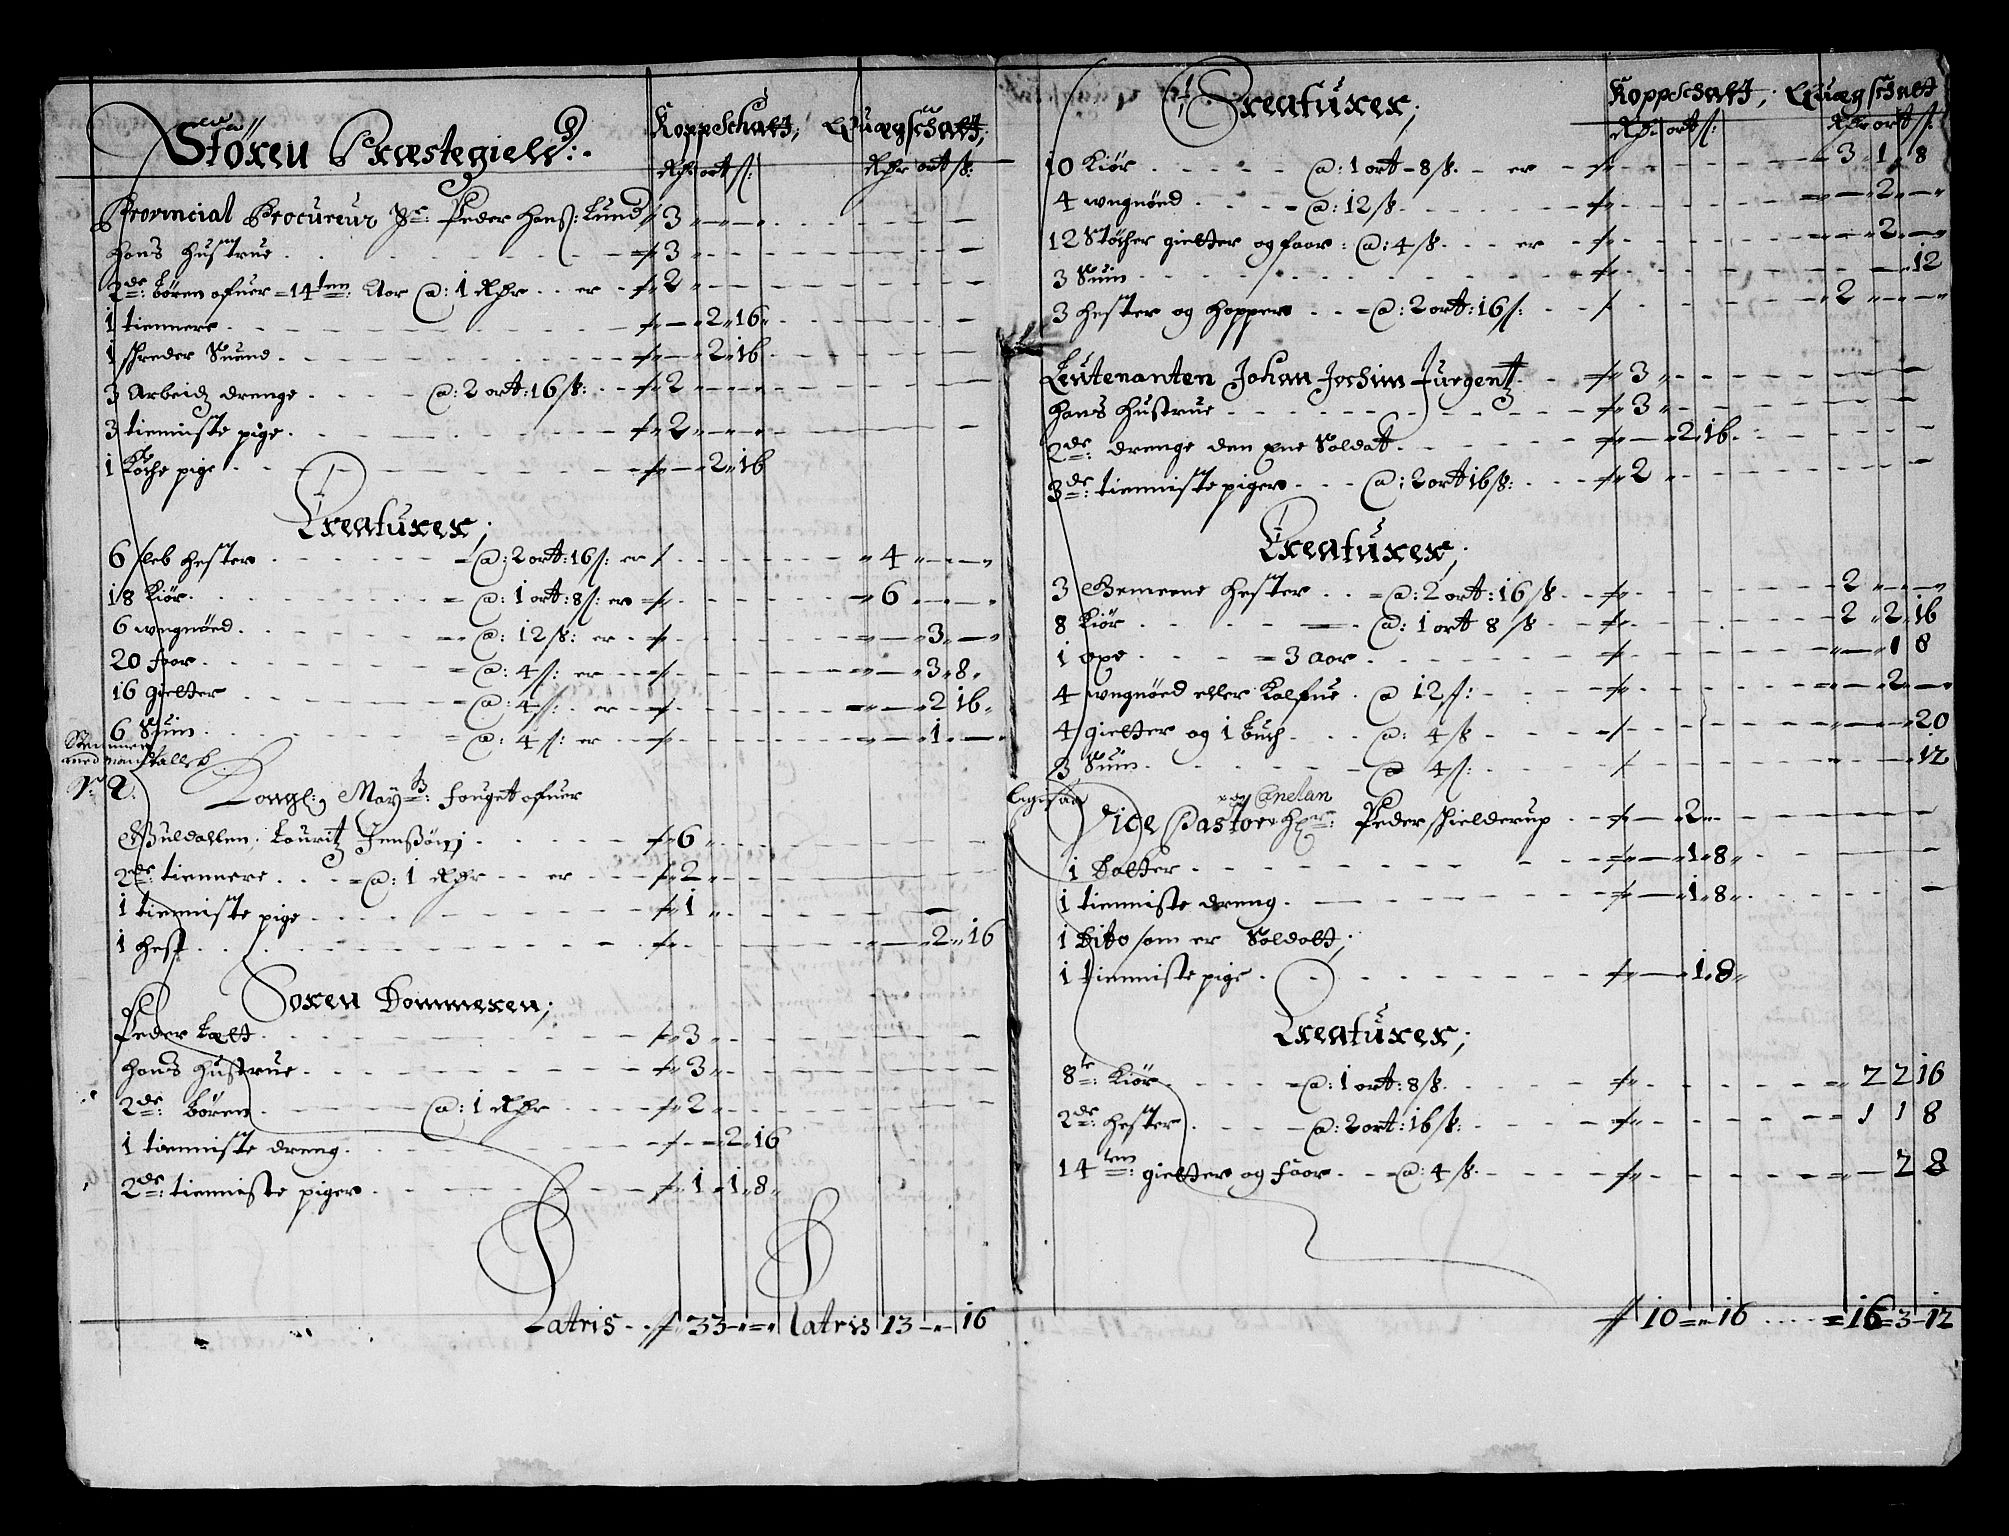 Stören Præstegield: Koppschatt; Qvægschatt;
Rdr ort s: Rdr ort sk:
Provincial Procureur Sr: Peder Hanss: Lund 3
hans hustrue 3
2de: børen ofuer 14ten: Aar @: 1 Rdr er 2
1 tiennere 2 16
1 schreder Suend 2 16
3 Arbeidz drenge @: 2 ort: 16 sk: 2
3 tienniste pige 2
1 Koche pige 2 16
Creaturer;
6 sleb hester @: 2 ort: 16 s: er 4
18 Kiör @: 1 ort: 8 s: er 6
6 ungnöed @: 12 sk: er 3
20 faar @: 4 s: er 3 8
16 gietter @: 4 s: er 2 16
6 Suin @: 4 s: er 1
Stemmer
med mantallet
Kongl: May: fouget ofuer
Guldallen, Lauritz Jenssön 6
2de: tiennere @: 1 Rdr er 2
1 tienniste pige 1
1 hest 2 16
Soren Dommeren;
Peder Lætt 3
hans hustrue 3
2de: børen @: 1 Rdr 2
1 tienniste dreng 2 16
2de: tienniste piger 1 1 8
Latris 33 Latris 13 16
Creaturer; Koppschatt; Qvægschatt
Rdr ort s: Rdr ort s:
10 Kiör @: 1 ort 8 sk. er 3 1 8
4 ungnöed @: 12 sk. 2
12 Stöcher gietter og faar: @: 4 sk. er 2
3 Suin 12
3 hester og hopper @: 2 ort: 16 s: 2
Leutenanten Johan Jochim Jurgentz 3
hans hustrue 3
2de: drenge den ene Soldat 2 16
3de: tienniste piger @: 2 ort 16 sk: 2
Creaturer;
3 Gemeene hester @: 2 ort: 16 sk 2
8 Kiör @: 1 ort 8 sk 2 2 16
1 oxe 3 aar 1 8
4 ungnöed eller Kalfue @ 12 s: 2
4 gietter og 1 buch @: 4 sk 20
3 Suin @ 4 s: 12
Ligesaa
og Capelan
Vice Pastor Hr: Peder schielderup 2
1 Datter 1 8
1 tienniste dreng 1 8
1 Dito som er Soldatt;
1 tienniste pige 1 8
Creaturer;
8te: Kiör @: 1 ort: 8 sk. 2 2 16
2de: hester @: 2 ort: 16 sk: 1 1 8
14ten: gietter og faar @: 4 sk 2 8
10 16 16 3 12